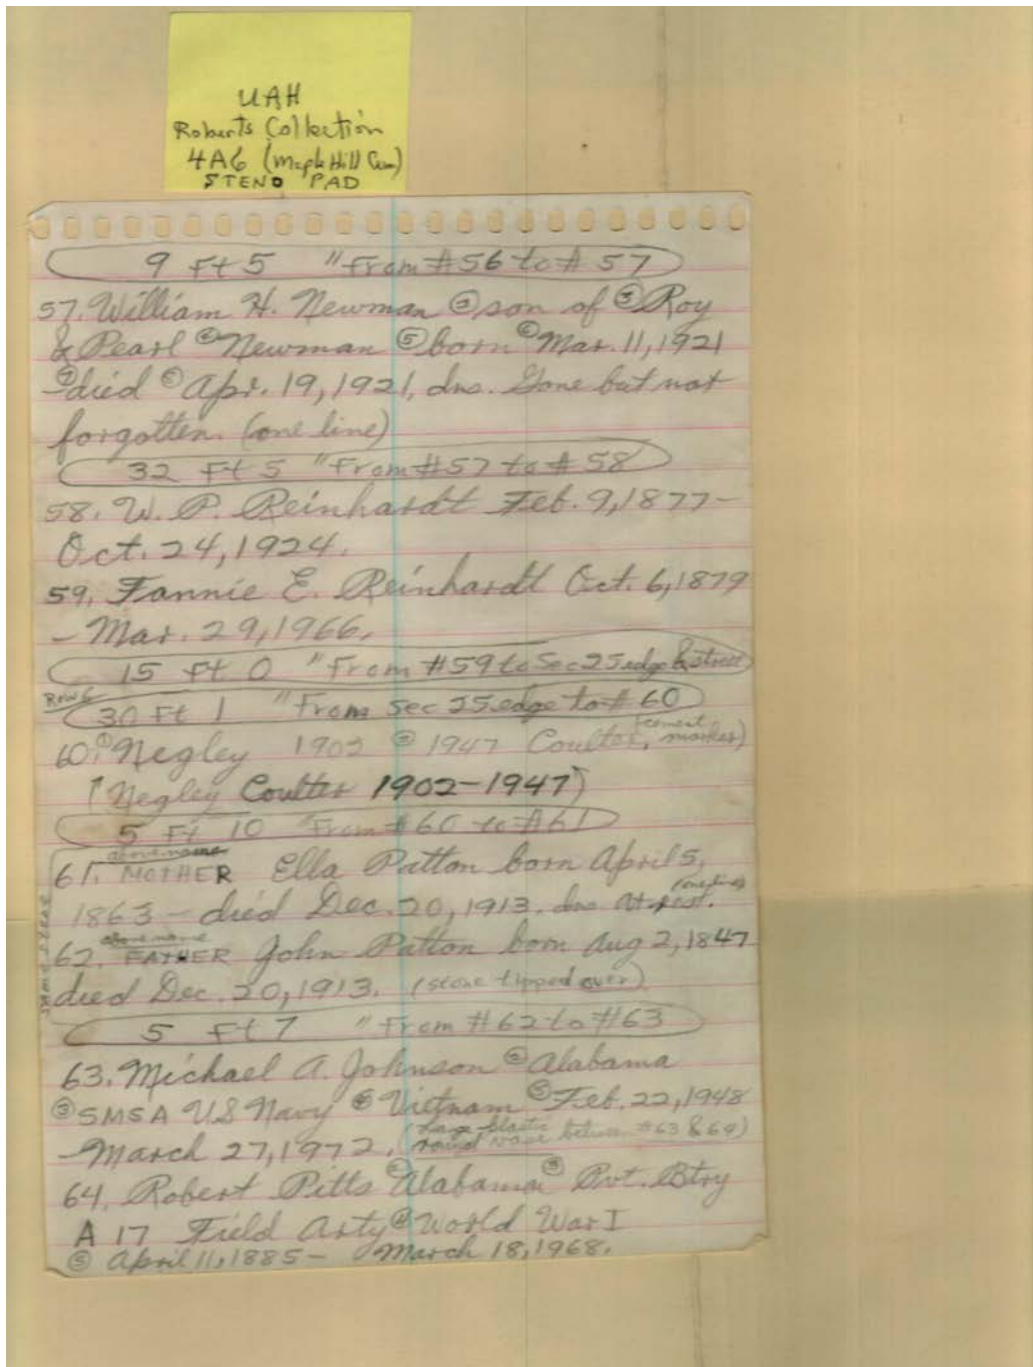 UAH
Roberts Collection
4A6 (Maple Hill Cem)
STENO PAD
9 Ft 5 "From #56 to # 57
57. William H. Newman ② son of ③ Roy
& Pearl ④ Newman ⑤ born ⑥ Mar. 11, 1921
⑦ died ⑧ Apr. 19, 1921, dns. Gone but not
forgotten. (one line)
32 Ft 5 "From #57 to # 58
58. W. P. Reinhardt Feb. 9, 1877-
Oct. 24, 1924.
59. Fannie E. Reinhardt Oct. 6, 1879
- Mar. 29, 1966.
15 Ft 0 "From #59 to Sec 25 edge & street
Row 6
30 Ft 1 "From Sec 25 edge to # 60
60. ① Negley 1902 ② 1947 Coulter, (cement marker)
(Negley Coulter 1902-1947)
5 Ft 10 "From #60 to #61
above name
61. MOTHER Ella Patton born April 5,
1863 - died Dec. 20, 1913. dns At rest. (one line)
above name
62. FATHER John Patton born Aug 2, 1847
died Dec. 20, 1913. (stone tipped over)
same stone
5 Ft 7 "From #62 to #63
63. Michael A. Johnson ② Alabama
③ SMSA US Navy ④ Vietnam ⑤ Feb. 22, 1948
- March 27, 1972. (large plastic round vase between #63 & 64)
64. Robert Pitts ② Alabama ③ Pvt. Btry
A 17 Field Arty ④ World War I
⑤ April 11, 1885 - March 18, 1968.